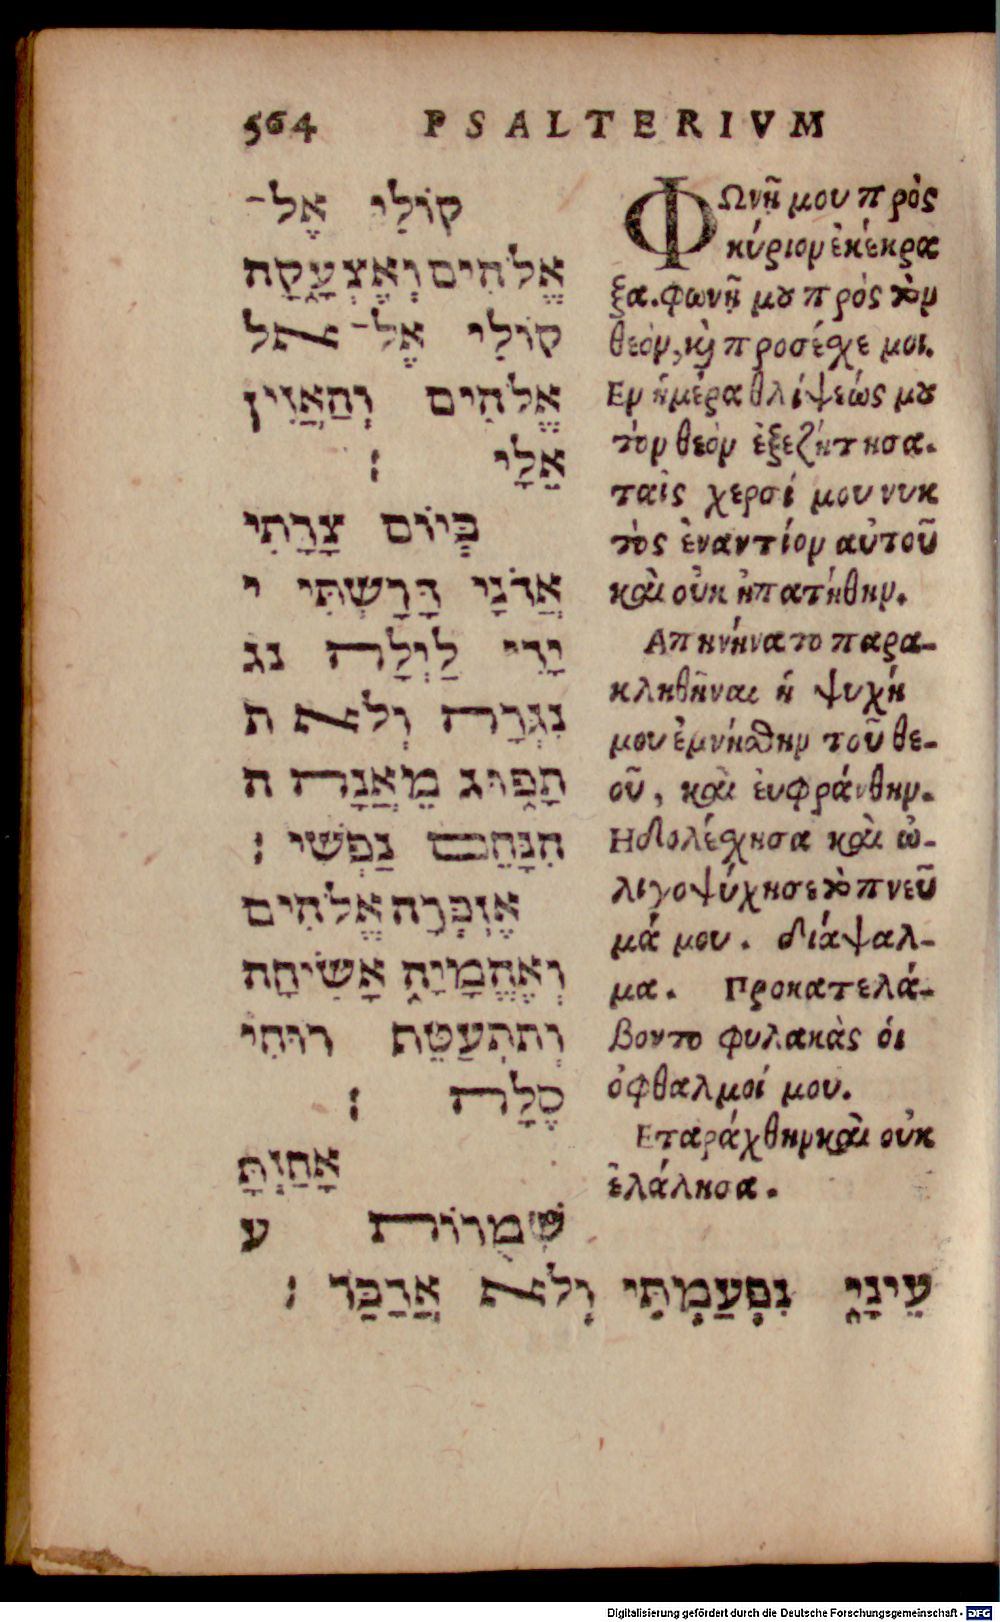 564 PSALTERIVM
קוֹלִי אֶל־
אֱלֹהִים וְאֶצְעָקָה
קוֹלִי אֶל־ אל
אֱלֹהִים וְהַאֲזִין
אֵלָי :
בְּיוֹם צָרָתִי
אֲדֹנָי דָּרָשְׁתִּי י
יָדִי לַיְלָה נג
נִגְּרָה וְלא ת
תָפוּג מֵאֲנָה ה
הִנָּחֵם נַפְשִׁי :
אֶזְכְּרָה אֱלֹהִים
וְאֶהֱמָיָה אָשִׂיחָה
וְתִתְעַטֵּף רוּחִי
סֶלָה :
אָחַזְתָּ
שְׁמֻרוֹת ע
עֵינָי נִפְעַמְתִּי וְלא אֲדַבֵּר :
ΦΩνῇ μου πρὸς
κύριον ἐκέκρα
ξα. φωνῇ μου πρὸς τὸν
θεόν, καὶ προσέχε μοι.
Εν ἡμέρα θλίψεώς μου
τὸν θεὸν ἐξεζήτησα.
ταῖς χερσί μου νυκ
τὸς ἐναντίον αὐτοῦ
καὶ οὐκ ἠπατήθην.
Απηνήνατο παρα-
κληθῆναι ἡ ψυχή
μου ἐμνήσθην τοῦ θε-
οῦ, καὶ ἐυφράνθην.
Ηδολέσχησα καὶ ὠ-
λιγοψύχησε τὸ πνεῦ
μά μου. διάψαλ-
μα. Προκατελά-
βοντο φυλακὰς ὁι
ὀφθαλμοί μου.
Εταράχθην καὶ οὐκ
ἐλάλησα.
Digitalisierung gefördert durch die Deutsche Forschungsgemeinschaft - DFG